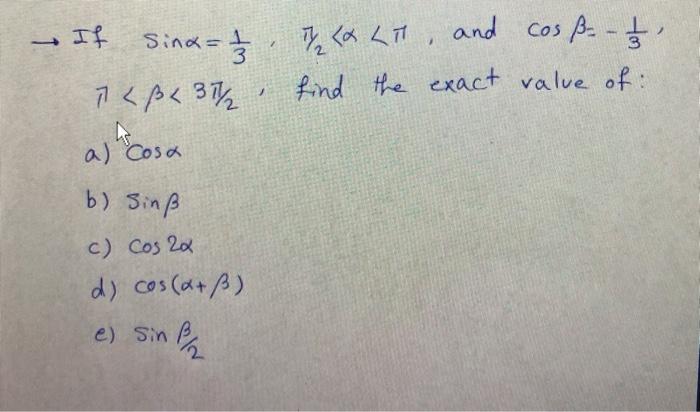 → If sinα = 1/3 , π/2 < α < π , and cos β = - 1/3 ,
π < β < 3π/2 , find the exact value of :
a) cosα
b) sinβ
c) cos 2α
d) cos(α+β)
e) sin β/2